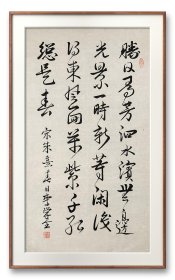 勝日尋芳泗水濱無邊
光景一時新等閑識
得東風面萬紫千紅
總是春 宋朱熹春日